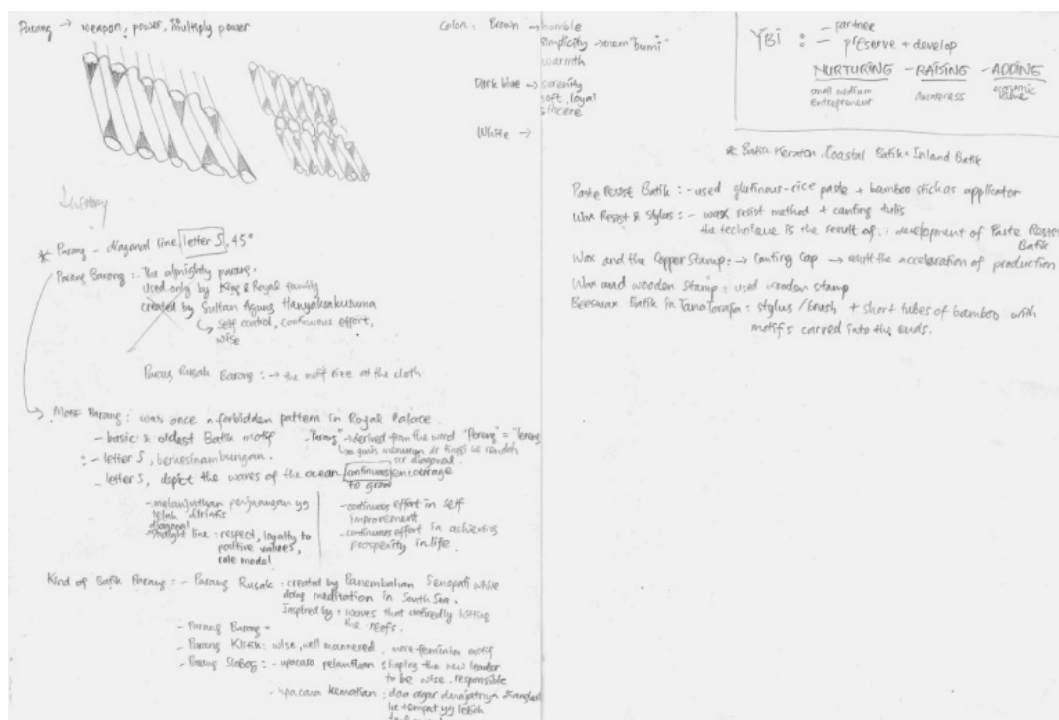 Parang → weapon, power, multiply power
History
* Parang - diagonal line, letter S, 45°
Parang Barong : The almighty parang.
used only by King & Royal family
created by Sultan Agung Hanyokrokusumo
self control, continuous effort,
wise
Parang Rusak Barong : → the motif size at the cloth
Motif Barong : was once a forbidden pattern in Royal Palace
- basic & oldest Batik motif
- "Parang" → derived from the word "Pereng" = "lereng"
: - letter S, berkesinambungan.
- letter S, depict the waves of the ocean, continuous encourage
to grow
- melanjutkan perjuangan yg
telah dirintis
diagonal
straight line : respect, loyalty to
positive values,
role model
- continuous effort in self
improvement
- continuous effort in achieving
prosperity in life.
Kind of Batik Parang : - Parang Rusak : created by Panembahan Senopati while
doing meditation in South Sea.
Inspired by : waves that hitting
the reefs.
- Parang Barong -
- Parang Klitik : wise, well mannered, more feminim motif
- Parang Slobog : - upacara pelantikan shaping the new leader
to be wise, responsible
- upacara kematian : doa agar
ke tempat yg lebih
Color : Brown → humble
simplicity → "bumi"
warmth
Dark blue → serenity
soft, loyal
sincere
White →
YBI : - partner
- preserve + develop
NURTURING - RAISING - ADDING
small medium
Entrepreneur
awareness
economic
value
* Batik Keraton, Coastal Batik, Inland Batik
Paste Resist Batik : - used glutinous-rice paste + bamboo stick as applicator
Wax Resist & Stylus : - wax resist method + canting tulis
the technique is the result of : development of Paste Resist
Batik
Wax and the Copper Stamp : → Canting Cap → result the acceleration of production
Wax and wooden stamp : used wooden stamp
Beeswax Batik in Tana Toraja : stylus / brush + short tubes of bamboo with
motifs carved into the ends.